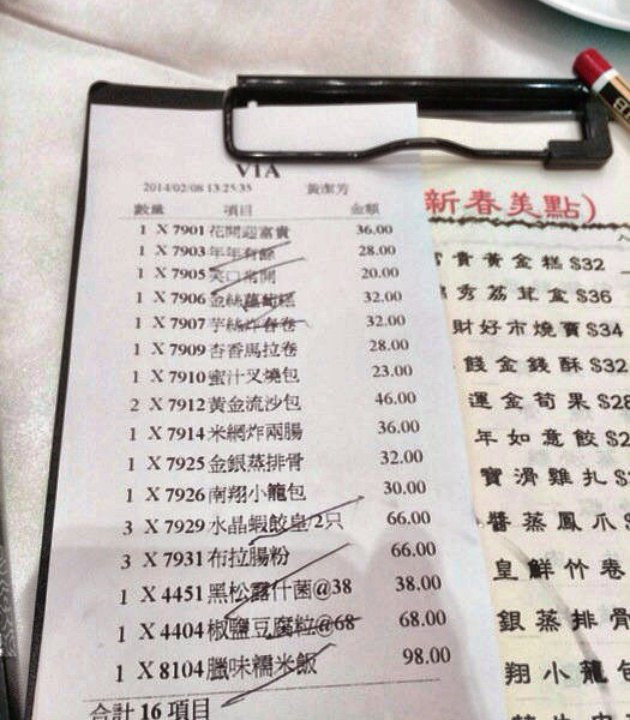 VIA
2014/02/08 13:25:35 黃潔芳
數量 項目 金額
1 X 7901 花開迎富貴 36.00
1 X 7903 年年有餘 28.00
1 X 7905 笑口常開 20.00
1 X 7906 金絲蘿蔔糕 32.00
1 X 7907 芋絲炸春卷 32.00
1 X 7909 杏香馬拉卷 28.00
1 X 7910 蜜汁叉燒包 23.00
2 X 7912 黃金流沙包 46.00
1 X 7914 米網炸兩腸 36.00
1 X 7925 金銀蒸排骨 32.00
1 X 7926 南翔小籠包 30.00
3 X 7929 水晶蝦餃皇/2只 66.00
3 X 7931 布拉腸粉 66.00
1 X 4451 黑松露什菌@38 38.00
1 X 4404 椒鹽豆腐粒@68 68.00
1 X 8104 臘味糯米飯 98.00
合計 16 項目
新春美點)
貴黃金糕 $32
秀荔茸盒 $36
財好市燒賣 $34
餞金錢酥 $32
運金荀果 $28
年如意餃 $2
寶滑雞扎 $
醬蒸鳳爪 $
皇鮮竹卷
銀蒸排骨
翔小籠包